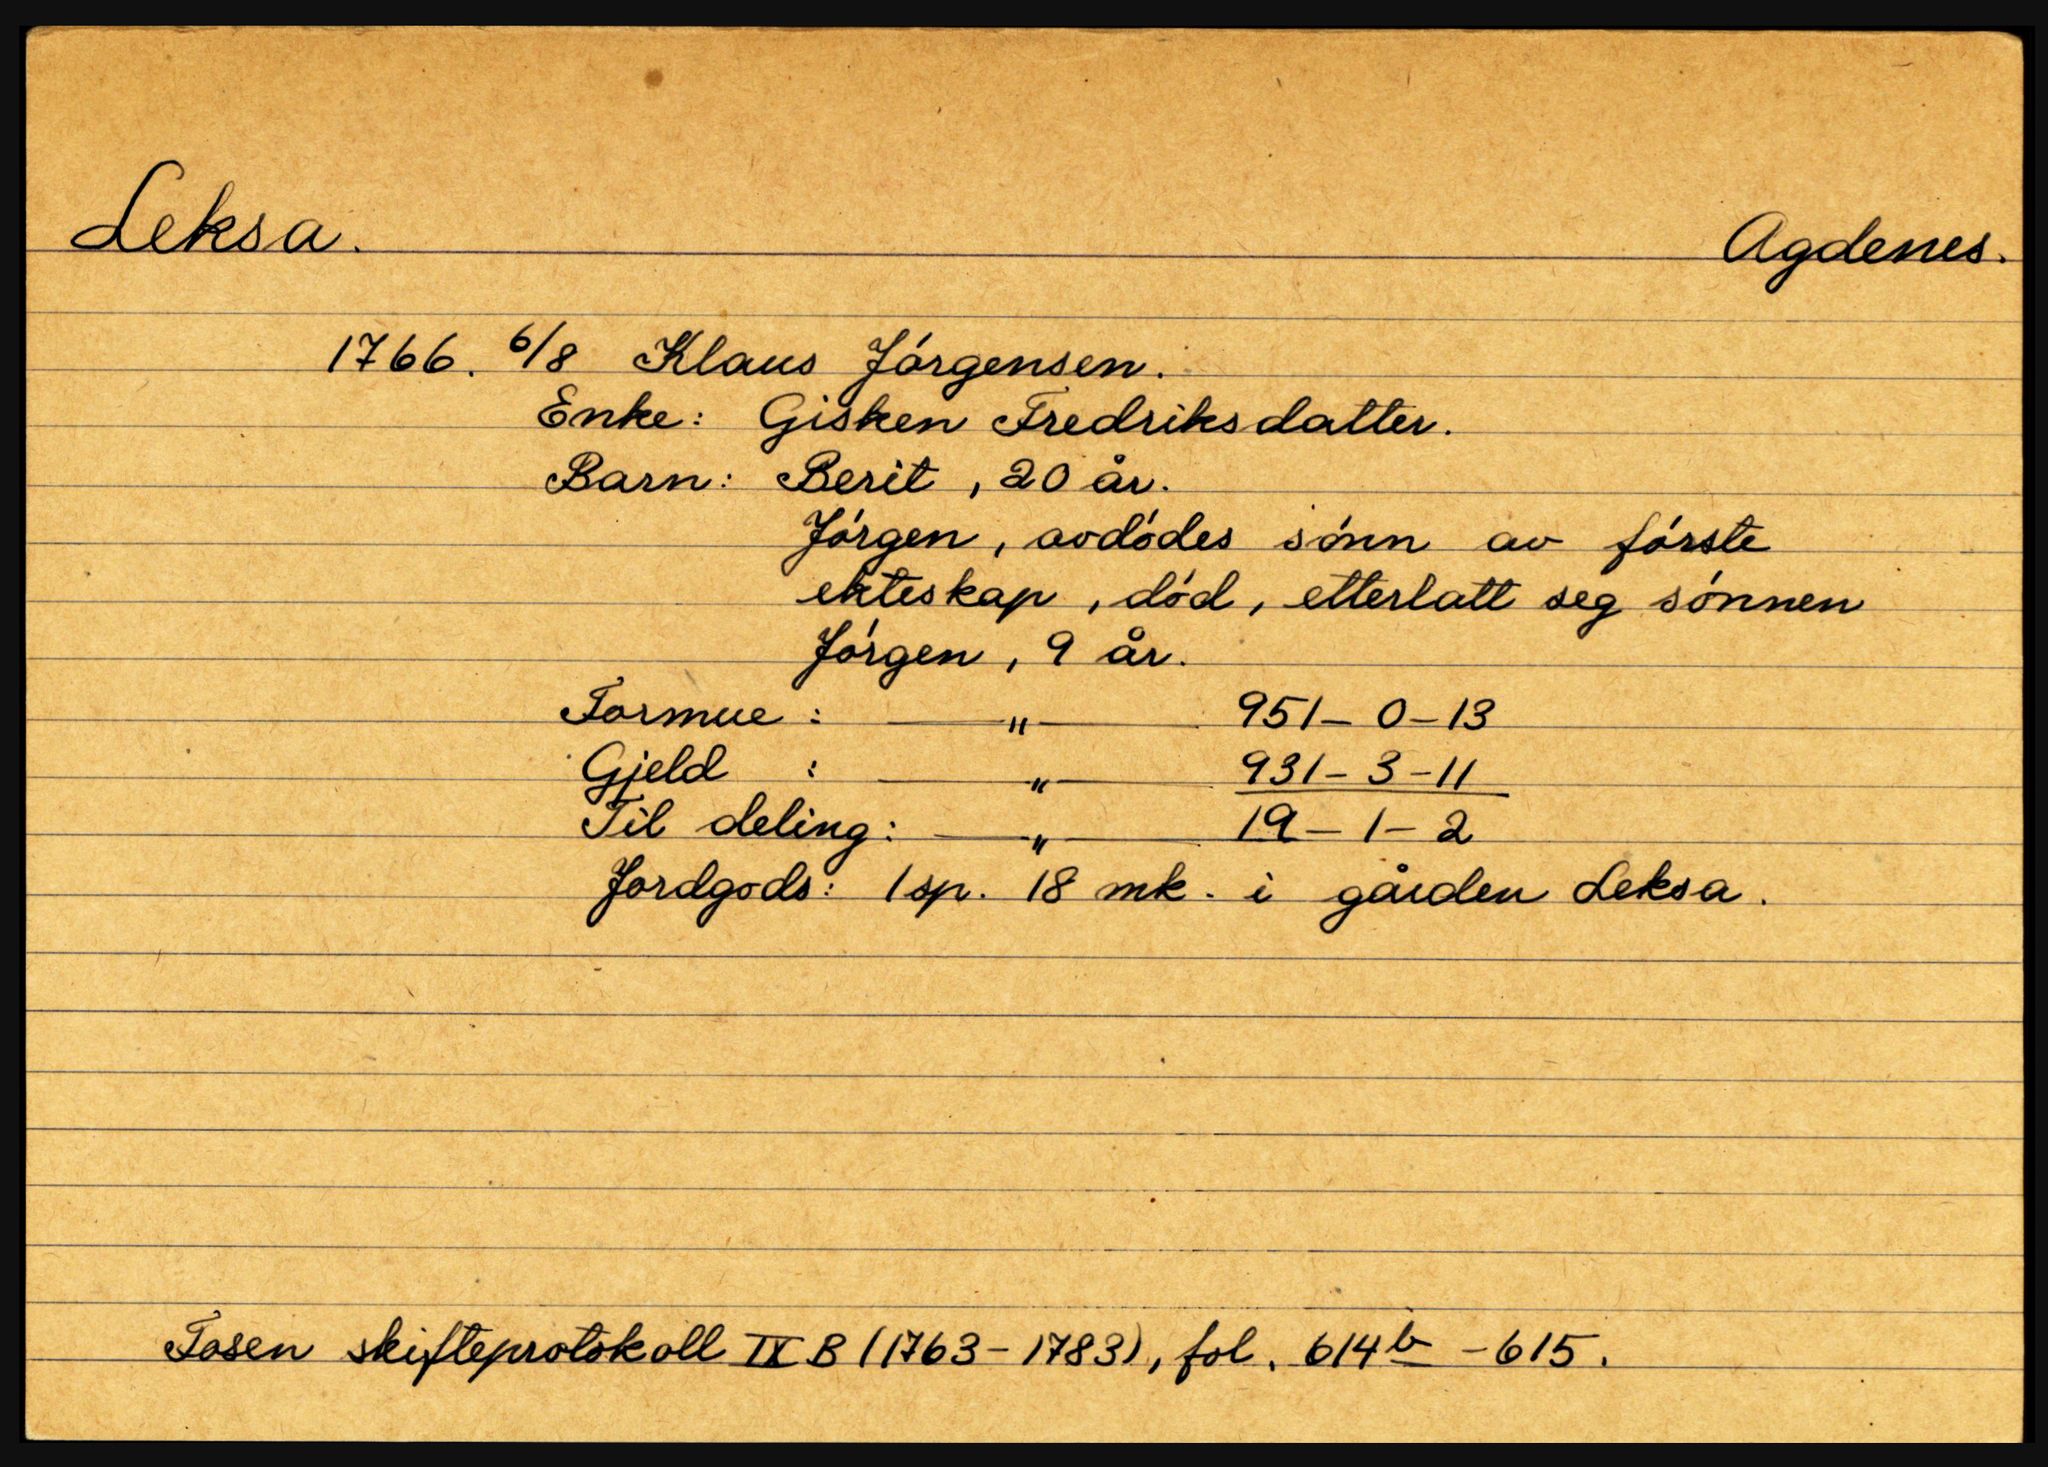 Leksa. Agdenes.
1766. 6/8 Klaus Jórgensen.
Enke: Gisken Fredriksdatter.
Barn: Berit, 20 år.
Jórgen, avdódes sónn av fórste
ekteskap, dód, etterlatt seg sónnen
Jórgen, 9 år.
Formue: — " — 951-0-13
Gjeld : — " — 931-3-11
Til deling: — " — 19-1-2
Jordgods: 1 sp. 18 mk. i gården Leksa.
Fosen skifteprotokoll IX B (1763-1783), fol. 614b-615.